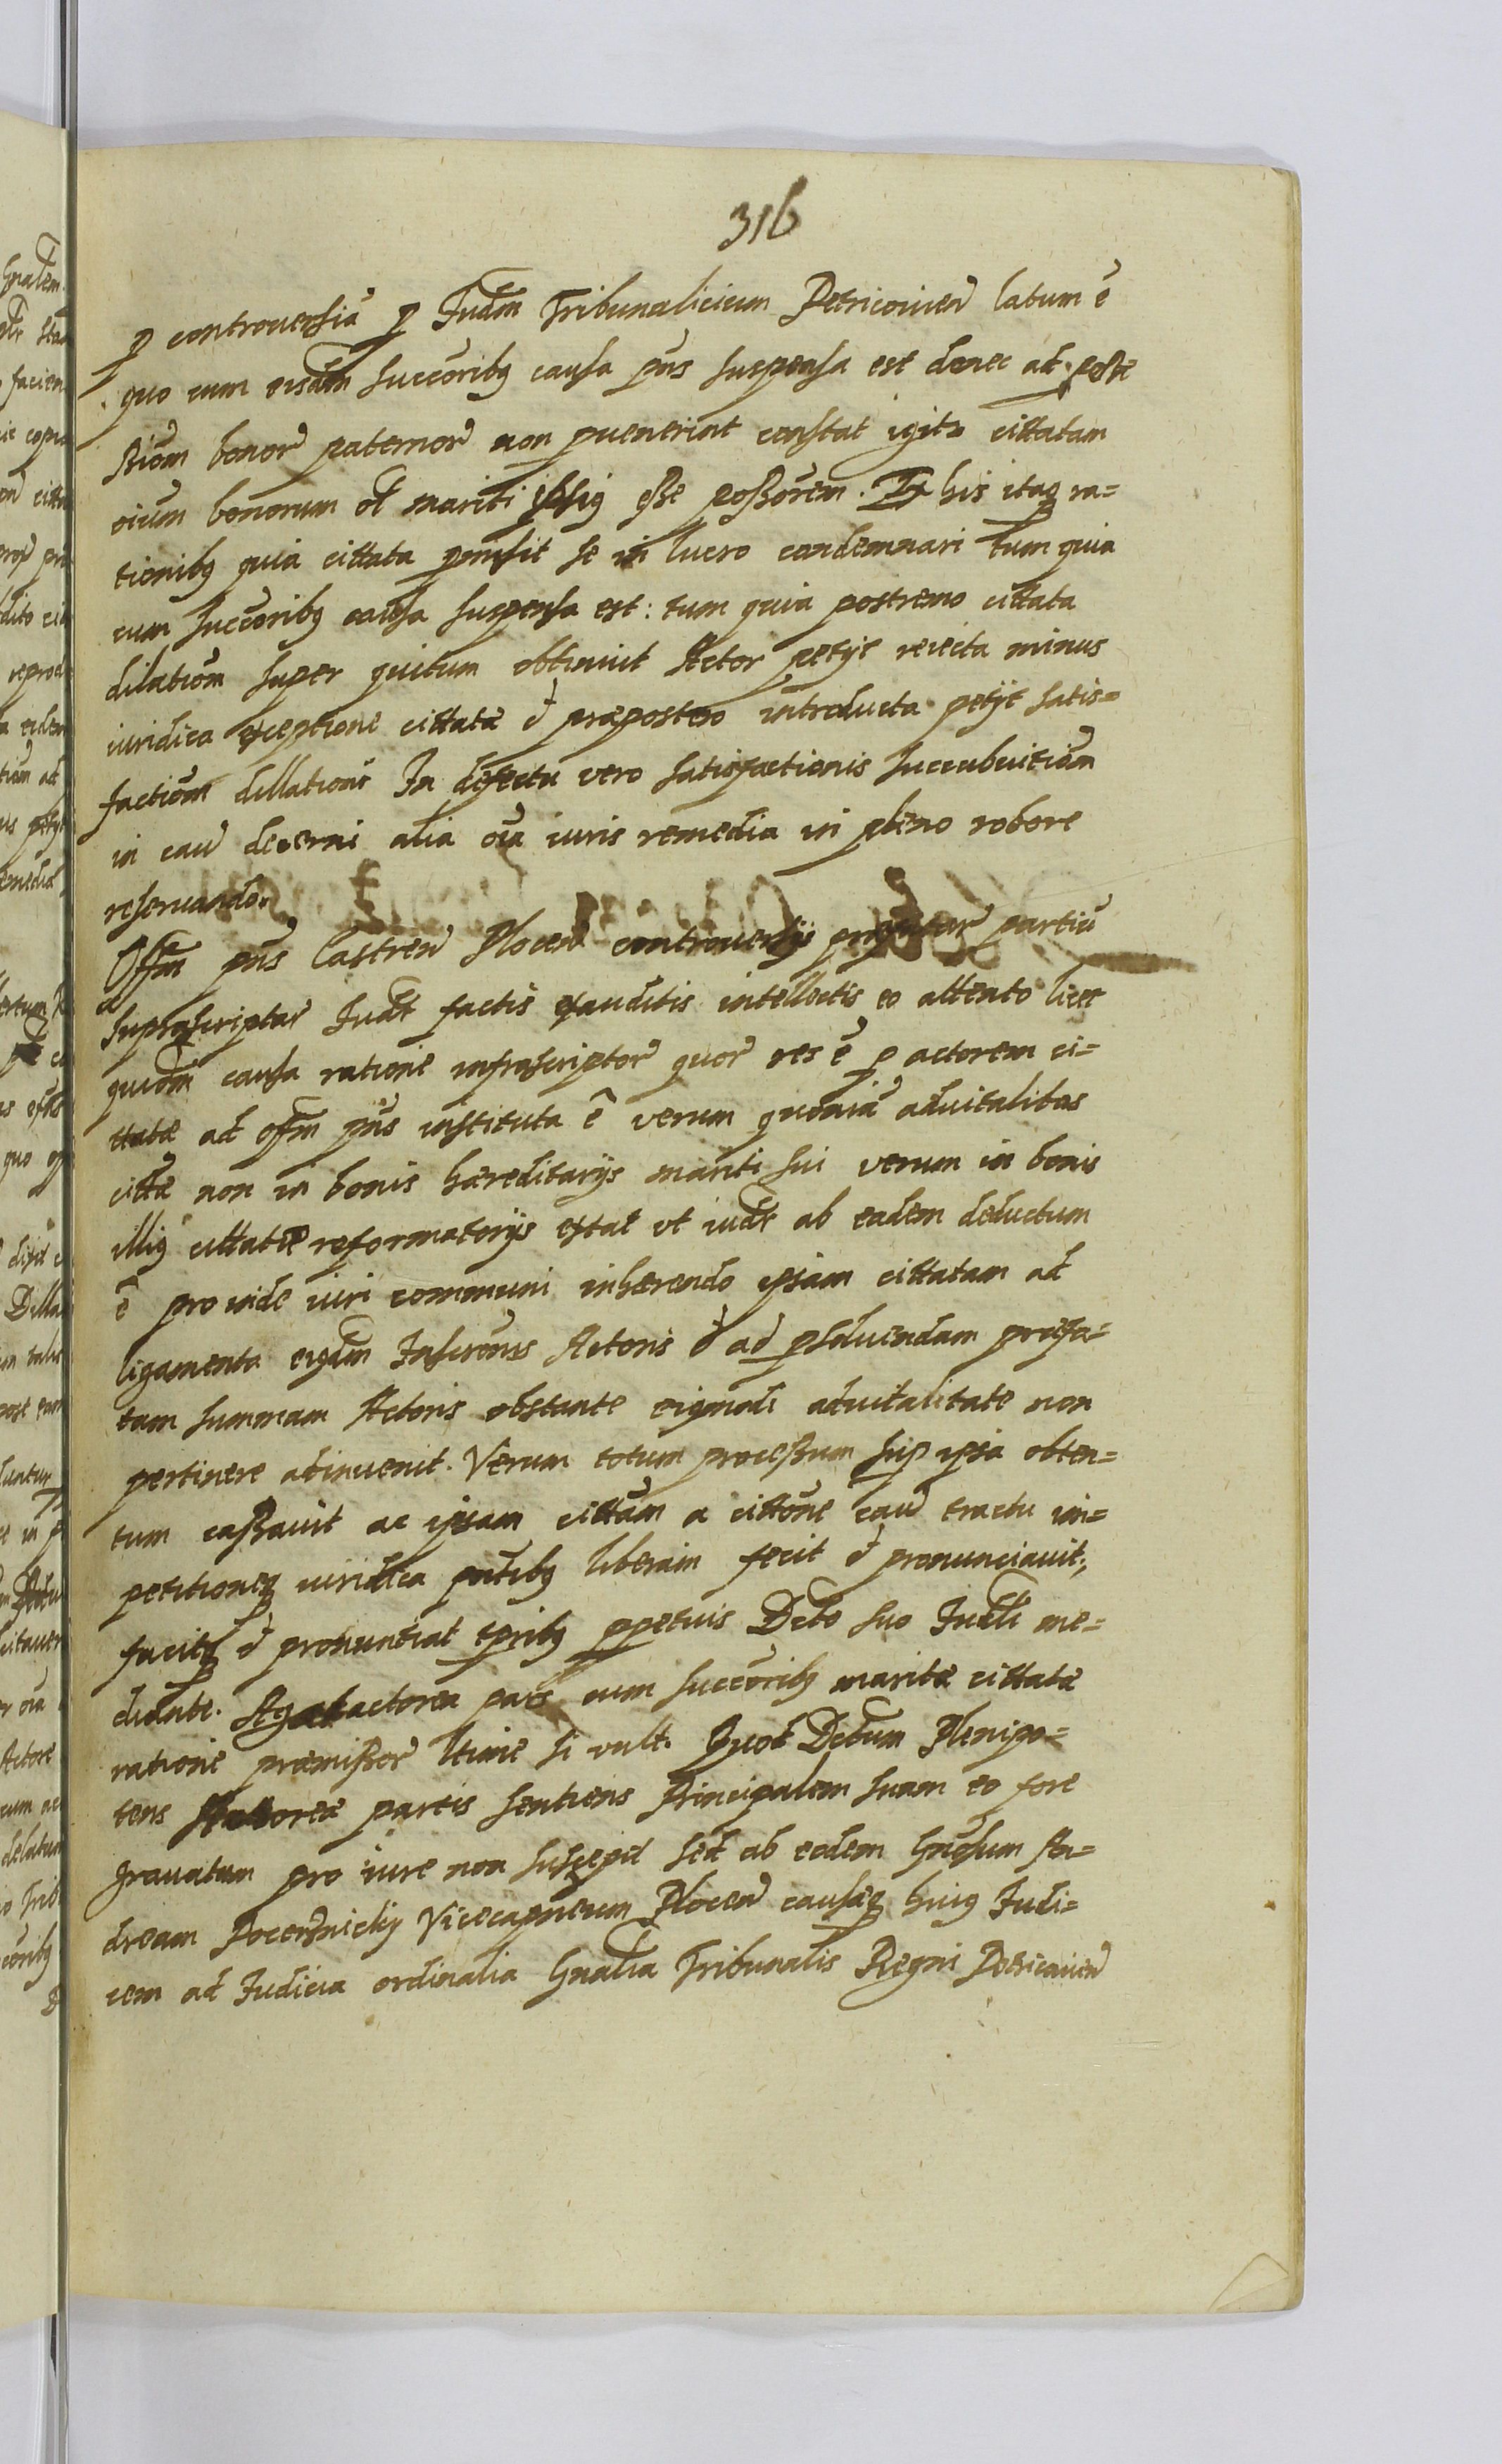 316
p controuersiã p Iudm Tribunalicium Petricouien latum ẽ
quo cum eisdem succoribg causa pns suspensa est donec ad posse
ssiom bonor paternor non puenerint constat igitr cittatam
oium bonorum ol mariti ipsig esse possorem. Ex his itaq ra=
tionibg quia cittata pmisit se in lucro condemnari tum quia
cum succoribg causa suspensa est: tum quia postremo cittata
dilatiom super quitum obtinuit Actor petyt reiecta minus
iuridica exceptione cittatæ et præpostero introducta petyt satis=
factiom dillationis In defectu vero satisfactionis succubuitiom
in cau decerni alia oia iuris remedia in pleno robore
reseruando.
Offm pns Castren Plocen controuersijs partiũ
suprascriptar Iudt factis exauditis intellectis eo attento licet
quidm causa ratione infrascriptor quor res ẽ p actorem ci=
ttatæ ad offm pns instituta ẽ verum quoniã aduitalitas
cittæ non in bonis hæreditarijs mariti sui verum in bonis
illig cittatæ reformatorijs extat vt iudt ab eadem deductum
ẽ pro inde iuri communi inhærendo ipsam cittatam ad
ligamenta eigdm Inscronis Actoris et ad psoluendam præfa=
tam summam Actoris obstante eigmodi aduitalitate non
pertinere adinuenit. Verum totum processum sup ipsa obten=
tum cassauit ac ipsam cittam a cittone cau tractu im=
petitioneq iuridica pntibg liberam fecit et pronunciauit,
facitq et pronuntiat tpribg ppetuis Dcto suo Iudli me=
diante. Agat actorea pars cum succoribg maritæ cittatæ
ratione præmissor ltime si vult. Quod Detum Plenipo=
tens Actoreæ partis sentiens Principalem suam eo fore
grauatum pro iure non suscepit sed ab eodem Gnosum An=
dream Pocerznicky Vicecapneum Plocen causæq huig Iudi=
cem ad Iudicia ordinalia Gnalia Tribunalis Regni Petricouien